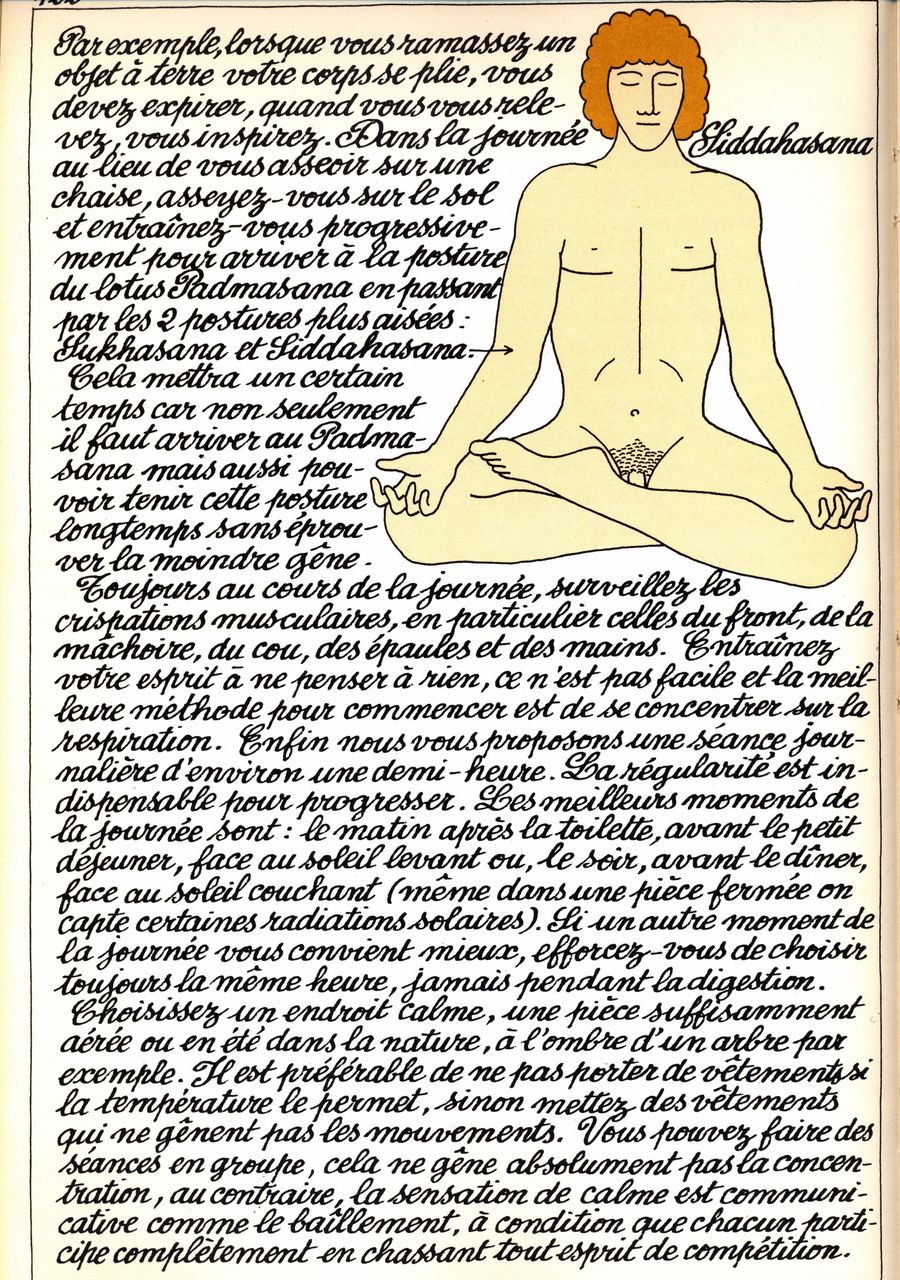 Par exemple, lorsque vous ramassez un
objet à terre votre corps se plie, vous
devez expirer, quand vous vous rele-
vez, vous inspirez. Dans la journée
au lieu de vous asseoir sur une
chaise, asseyez-vous sur le sol
et entraînez-vous progressive-
ment pour arriver à la posture
du lotus Padmasana en passant
par les 2 postures plus aisées :
Sukhasana et Siddahasana.
Siddahasana
Cela mettra un certain
temps car non seulement
il faut arriver au Padma-
sana mais aussi pou-
voir tenir cette posture
longtemps sans éprou-
ver la moindre gêne.
Toujours au cours de la journée, surveillez les
crispations musculaires, en particulier celles du front, de la
mâchoire, du cou, des épaules et des mains. Entraînez
votre esprit à ne penser à rien, ce n'est pas facile et la meil-
leure méthode pour commencer est de se concentrer sur la
respiration. Enfin nous vous proposons une séance jour-
nalière d'environ une demi-heure. La régularité est in-
dispensable pour progresser. Les meilleurs moments de
la journée sont : le matin après la toilette, avant le petit
déjeuner, face au soleil levant ou, le soir, avant le dîner,
face au soleil couchant (même dans une pièce fermée on
capte certaines radiations solaires). Si un autre moment de
la journée vous convient mieux, efforcez-vous de choisir
toujours la même heure, jamais pendant la digestion.
Choisissez un endroit calme, une pièce suffisamment
aérée ou en été dans la nature, à l'ombre d'un arbre par
exemple. Il est préférable de ne pas porter de vêtements si
la température le permet, sinon mettez des vêtements
qui ne gênent pas les mouvements. Vous pouvez faire des
séances en groupe, cela ne gêne absolument pas la concen-
tration, au contraire, la sensation de calme est communi-
cative comme le baîllement, à condition que chacun parti-
cipe complètement en chassant tout esprit de compétition.